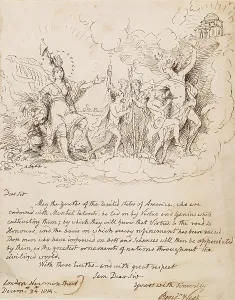 Dear Sir
May the youths of the United States of America, who are
endowed with Mental talents, be led on by Virtue and Genius while
cultivating them; by which they will prove that Virtue is the road to
Honour, and the basis on which every refinement has been
Those men who have improved in arts and sciences will then be
by them, as the greatest ornaments of nations throughout the
civilized world.
With these and with great respect
I am Dear Sir
Yours with Sincerity
London Newman Street
Benj. West